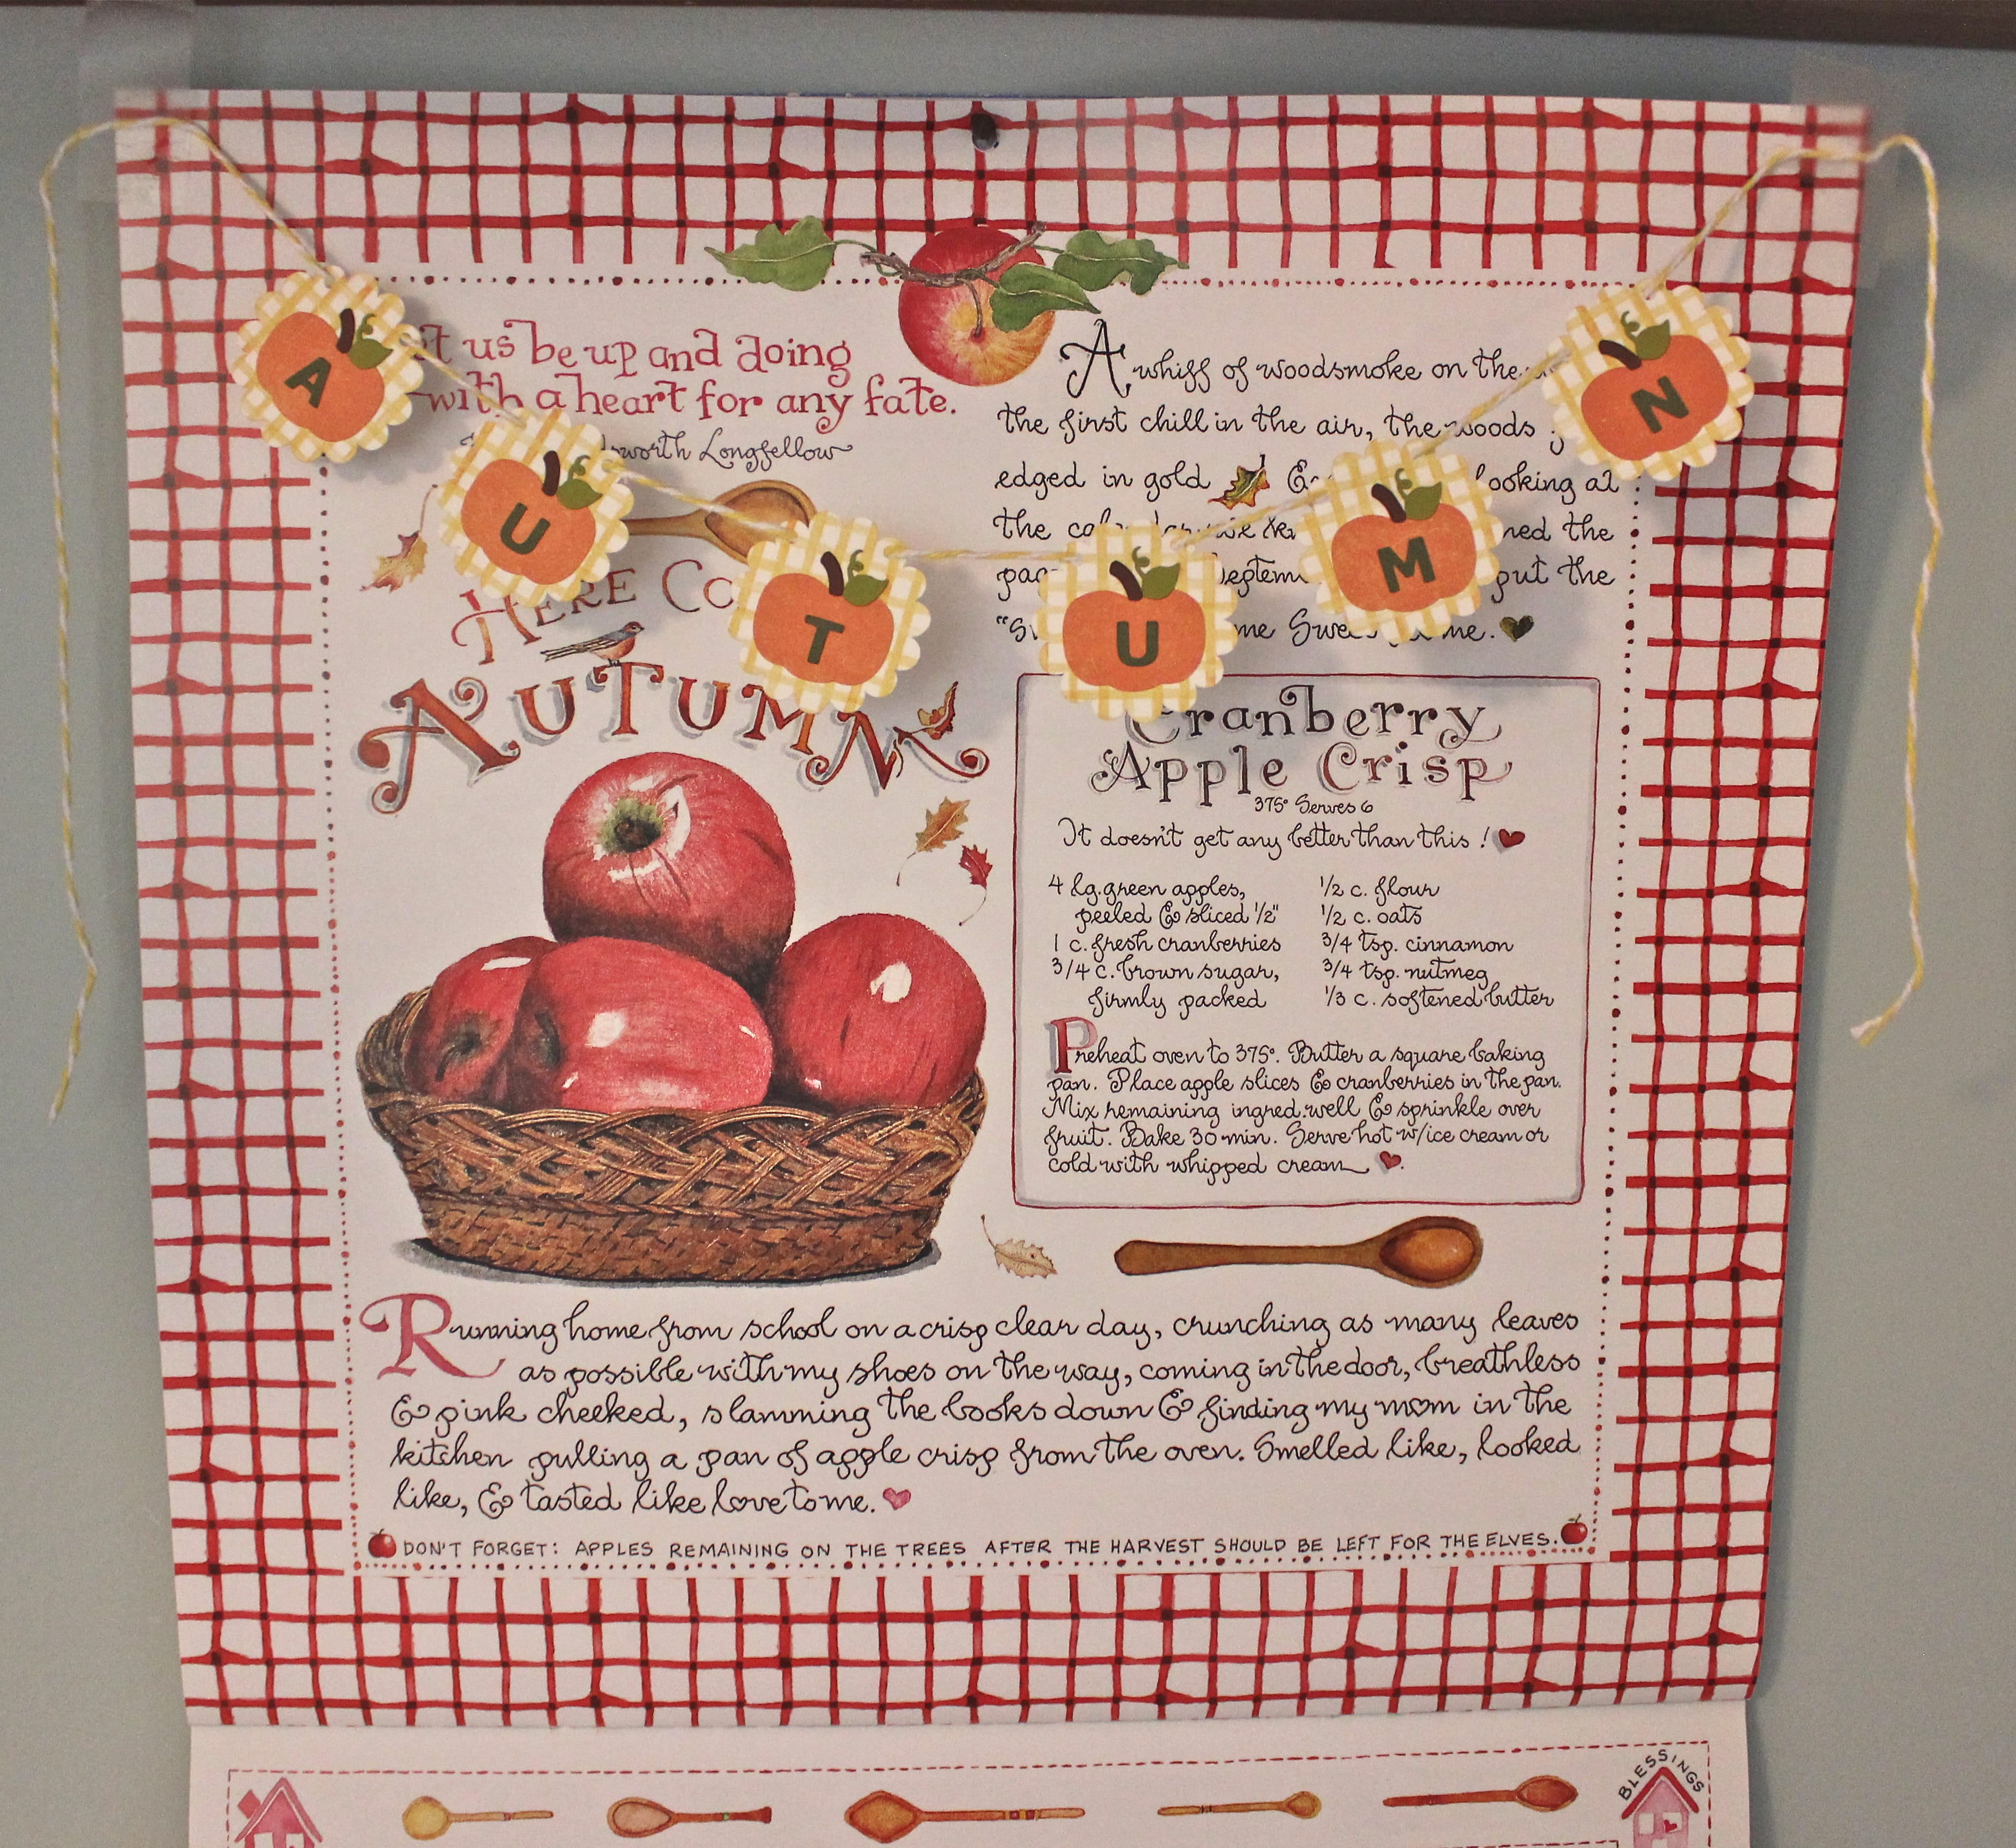 A
U
T
U
M
N
us be up and doing
with a heart for any fate.
Longfellow
HERE
AUTUMN
A whiff of woodsmoke on the
the first chill in the air, the woods
edged in gold looking at
the the
put the
me.
Cranberry
Apple Crisp
375° Serves 6
It doesn't get any better than this!
4 lg. green apples,
peeled & sliced 1/2"
1 c. fresh cranberries
3/4 c. brown sugar,
firmly packed
1/2 c. flour
1/2 c. oats
3/4 tsp. cinnamon
3/4 tsp. nutmeg
1/3 c. softened butter
Preheat oven to 375°. Butter a square baking
pan. Place apple slices & cranberries in the pan.
Mix remaining ingred. well & sprinkle over
fruit. Bake 30 min. Serve hot w/ice cream or
cold with whipped cream
Running home from school on a crisp clear day, crunching as many leaves
as possible with my shoes on the way, coming in the door, breathless
& pink cheeked, slamming the books down & finding my mom in the
kitchen pulling a pan of apple crisp from the oven. Smelled like, looked
like, & tasted like love to me.
DON'T FORGET: APPLES REMAINING ON THE TREES AFTER THE HARVEST SHOULD BE LEFT FOR THE ELVES.
BLESSINGS